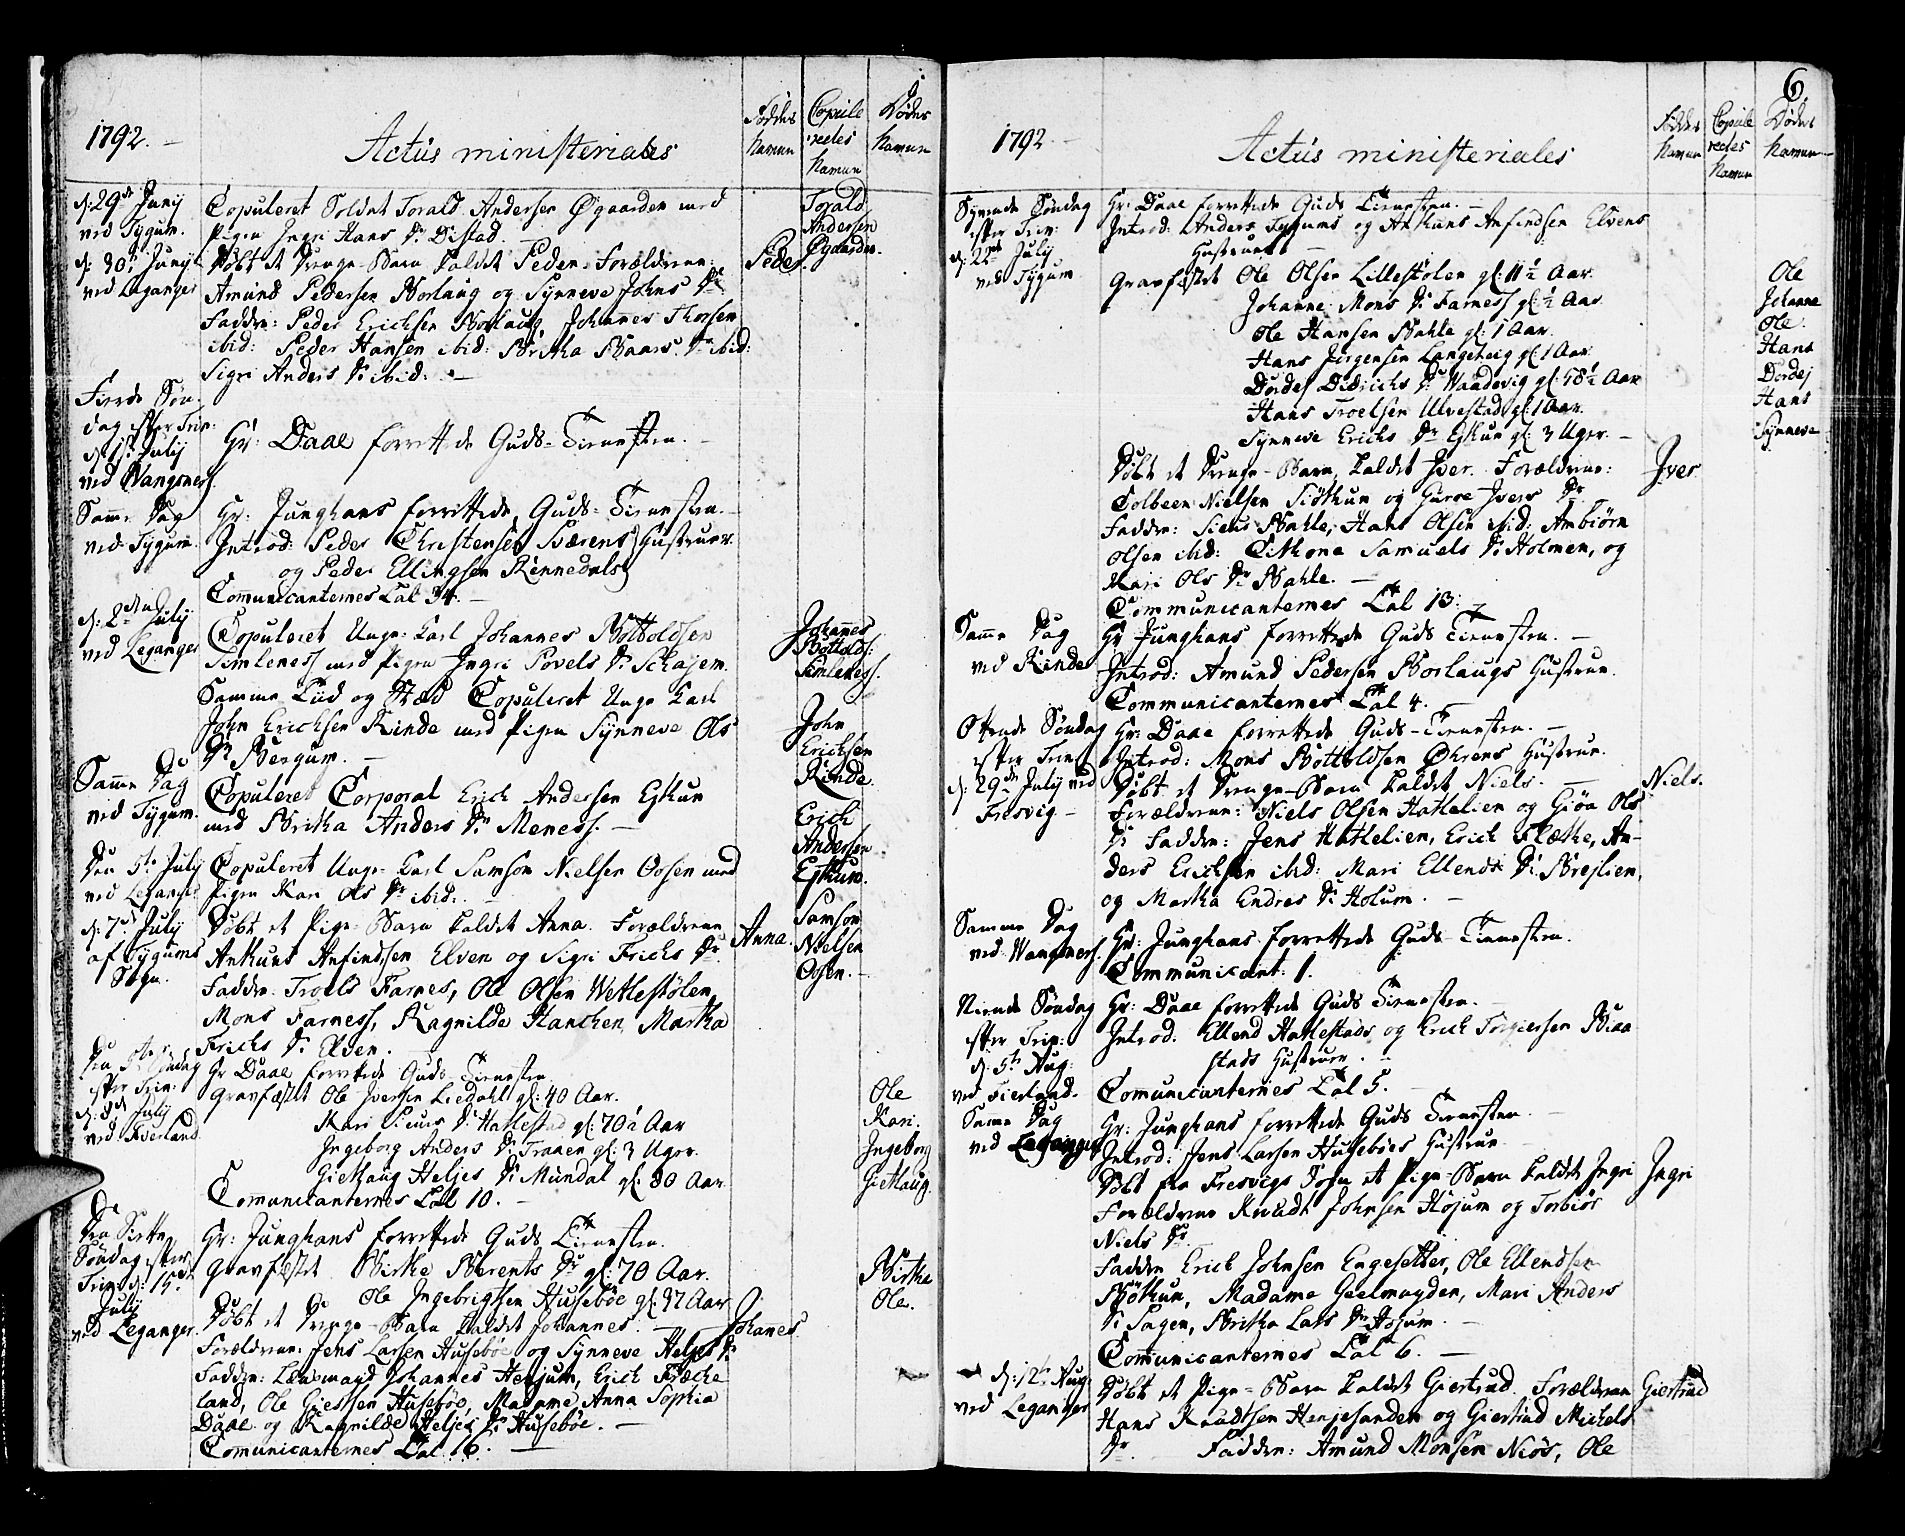 1792.
Actus ministeriales
Føddes Namne
Copule redes Namne
Dødes Namne
d: 29de Junij ved Tygum.
Copuleret Soldat Torald Andersen Øgaarden med
Pigen Ingri Hans Dr Distad.
Torald Andersen Øgaarden.
d. 30te Junij ved Leganger
Døbt et Drenge-Barn kaldet Peder. Forældrene:
Peder
Amund Pedersen Borlaug og Synneve Johns Dr
Faddere: Peder Erichsen Borlaug, Johannes Thorsen
ibid: Peder Hansen ibid: Britha Baars Dr ibid:
Sigri Anders Dr ibid:
Fierde Søndag efter Trin: d. 1te July ved Wangsnes.
Hr: Daae forrettede Guds-Tienesten.
Samme Dag ved Tygum.
Hr: Junghans forrettede Guds-Tienesten.
Introd: Peder Christensen Sværens Hustruer
og Peder Ellingsen Rinnedals
Comunicanternes Tal 34.
d: 2den July ved Leganger
Copuleret Unge-Karl Johannes Bottolfsen
Simleness med Pigen Ingri Povels Dr Schajem.
Johannes Bottolfs: Simleness.
Samme Tid og Stæd Copuleret Unge Karl
John Erichsen Rinde med Pigen Synneve Ols
Dr Bergum.
John Erichsen Rinde.
Samme Dag ved Tygum.
Copuleret Corporal Erich Andersen Eschum
med Britha Anders Dr Meness.
Erich Andersen Eschum.
Den 5te July ved Leganger
Copuleret Unge-Karl Samson Nielsen Oosen med
Pigen Kari Ols Dr ibid:
Samson Nielsen Oosen.
d: 7de July af Tygums Sogn.
Døbt et Pige-Barn kaldet Anna. Forældrene
Anna
Anthuns Anfindsen Elven og Sigri Frichs Dr
Faddere: Troels Farnes, Ole Olsen Wetlestølen,
Mons Farness, Ragnilde Hanchen, Martha
Frichs Dr Elven.
Den 5te Søndag efter Trin: d: 8de July ved Fierland.
Hr Daae forrettede Guds-Tienesten
Gravfæstet Ole Iversen Liedahl gl: 40 Aar.
Ole
Kari Siurs Dr Hatlestad gl: 70½ Aar
Kari.
Ingeborg Anders Dr Traaen gl: 3 Uger.
Ingeborg
Giethaug Heljes Dr Mundal gl: 80 Aar.
Giethaug.
Comunicanternes Tal 10.
Den Siette Søndag efter Trin: d: 15de July ved Leganger.
Hr: Junghans forrettede Guds Tienesten.
Gravfæstet Birthe Berents Dr gl: 70 Aar.
Birthe
Ole Ingebrigtsen Husebøe gl: 37 Aar
Ole.
Døbt et Drenge-Barn kaldet Johannes.
Johanes.
Forældrene: Jens Larsen Husebøe og Synneve Heljes Dr
Faddere: Johannes Henjum, Erich Fretheland,
Ole Giertsen Husebøe, Madame Anna Sophia
Daae og Ragnilde Heljes Dr Husebøe.
Comunicanternes Tal 16.

6
1792
Actus ministeriales
Føddes Namne
Copule redes Namne
Dødes Namne
Syvende Søndag efter Trin: d: 22de July ved Tygum
Hr: Daae forrettede Guds Tienesten.
Introd: Anders Tygums og Anthuns Anfindsen Elvens
Hustruer
Gravfæstet Ole Olsen Lillestølen gl: 11½ Aar.
Ole
Johanne Mons Dr Farness gl: ½ Aar.
Johanne
Ole Hansen Bahle gl: 1 Aar.
Ole.
Hans Jørgensen Langeteig gl: 1 Aar.
Hans
Dordej Didrichs Dr Waadevig gl: 58½ Aar
Dordej
Hans Troelsen Ulvestad gl: 1 Aar.
Hans
Synneve Erichs Dr Eschum gl: 3 Uger.
Synneve
Døbt et Drenge-Barn, kaldet Iver. Forældrene:
Iver
Tolbeen Nielsen Siøthun og Guroe Ivers Dr
Faddere: Siurs Bahle, Hans Olsen ibid: Ambiørn
Olsen ibid: Cithone Samuels Dr Holmen, og
Kari Ols Dr Bahle.
Communicanternes Tal 13.
Samme Dag ved Rinde
Hr Junghans forrettede Guds Tienesten.
Introd: Amund Pedersen Borlaugs Hustrue.
Communicanternes Tal 4.
Ottende Søndag efter Trin: d: 29de July ved Fresvig
Hr: Daae forrettede Guds-Tienesten.
Introd: Mons Bottolfsen Øhrens Hustrue.
Døbt et Drenge-Barn kaldet Niels.
Niels.
Forældrene: Niels Olsen Hathelien og Giøa Ols
Dr Faddere: Jens Hathelien, Erich Flæthe, Anders
Erichsen ibid: Mari Ellends Dr Brejlien,
og Martha Endres Dr Holum.
Samme Dag ved Wangsnes.
Hr: Junghans forrettede Guds Tienesten.
Communicant: 1.
Niende Søndag efter Trin: d: 5te Aug: ved Fierland.
Hr: Daae forrettede Guds Tienesten.
Introd: Ellend Hatlestads og Erich Torgiersen Biaastads
Hustruer.
Comunicanternes Tal 5.
Samme Dag ved Leganger
Hr: Junghans forrettede Guds Tienesten
Introd: Jens Larsen Husebøes Hustrue
Døbt fra Fresvigs Sogn et Pige-Barn kaldet Ingri
Ingri
Forældrene Knudt Johnsen Højum og Torbiør
Niels Dr
Faddere Erich Johnsen Engesetter, Ole Ellendsen
Bøthun, Madame Geelmuyden, Mari Anders
Dr Sagen, Britha Lars Dr Højum.
Comunicanternes Tal 6.
d: 12te Aug: ved Leganger
Døbt et Pige-Barn kaldet Giertrud. Forældrene
Giertrud
Hans Knudtsen Henjesanden og Giertrud Michels
Dr Faddere: Amund Monsen Niøs, Ole